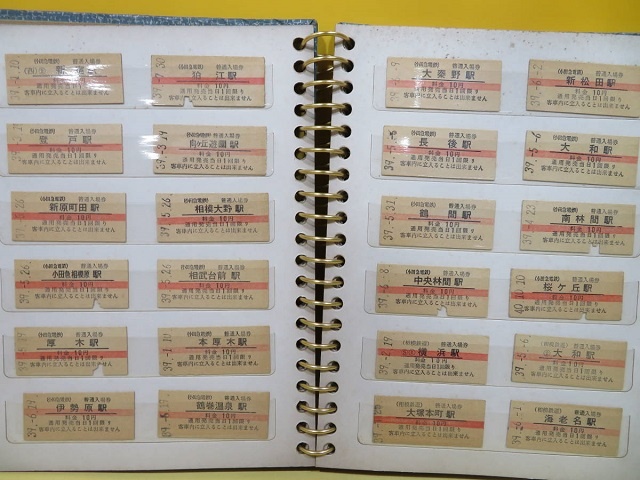 (小田急電鉄) 普通入場券
料金 10円
通用発売当日1回限り
客車内に立入ることは出来ません
(小田急電鉄) 普通入場券
狛江駅
料金 10円
通用発売当日1回限り
客車内に立入ることは出来ません
(小田急電鉄) 普通入場券
登戸駅
料金 10円
通用発売当日1回限り
客車内に立入ることは出来ません
(小田急電鉄) 普通入場券
向ヶ丘遊園駅
料金 10円
通用発売当日1回限り
客車内に立入ることは出来ません
(小田急電鉄) 普通入場券
新原町田駅
料金 10円
通用発売当日1回限り
客車内に立入ることは出来ません
(小田急電鉄) 普通入場券
相模大野駅
料金 10円
通用発売当日1回限り
客車内に立入ることは出来ません
(小田急電鉄) 普通入場券
小田急相模原駅
料金 10円
通用発売当日1回限り
客車内に立入ることは出来ません
(小田急電鉄) 普通入場券
相武台前駅
料金 10円
通用発売当日1回限り
客車内に立入ることは出来ません
(小田急電鉄) 普通入場券
厚木駅
料金 10円
通用発売当日1回限り
客車内に立入ることは出来ません
(小田急電鉄) 普通入場券
本厚木駅
料金 10円
通用発売当日1回限り
客車内に立入ることは出来ません
(小田急電鉄) 普通入場券
伊勢原駅
料金 10円
通用発売当日1回限り
客車内に立入ることは出来ません
(小田急電鉄) 普通入場券
鶴巻温泉駅
料金 10円
通用発売当日1回限り
客車内に立入ることは出来ません
(小田急電鉄) 普通入場券
大秦野駅
料金 10円
通用発売当日1回限り
客車内に立入ることは出来ません
(小田急電鉄) 普通入場券
新松田駅
料金 10円
通用発売当日1回限り
客車内に立入ることは出来ません
(小田急電鉄) 普通入場券
長後駅
料金 10円
通用発売当日1回限り
客車内に立入ることは出来ません
(小田急電鉄) 普通入場券
大和駅
料金 10円
通用発売当日1回限り
客車内に立入ることは出来ません
(小田急電鉄) 普通入場券
鶴間駅
料金 10円
通用発売当日1回限り
客車内に立入ることは出来ません
(小田急電鉄) 普通入場券
南林間駅
料金 10円
通用発売当日1回限り
客車内に立入ることは出来ません
(小田急電鉄) 普通入場券
中央林間駅
料金 10円
通用発売当日1回限り
客車内に立入ることは出来ません
(小田急電鉄) 普通入場券
桜ケ丘駅
料金 10円
通用発売当日1回限り
客車内に立入ることは出来ません
(相模鉄道) 普通入場券
横浜駅
料金 10円
通用発売当日1回限り
客車内に立入ることは出来ません
(相模鉄道) 普通入場券
大和駅
料金 10円
通用発売当日1回限り
客車内に立入ることは出来ません
(相模鉄道) 普通入場券
大塚本町駅
料金 10円
通用発売当日1回限り
客車内に立入ることは出来ません
(相模鉄道) 普通入場券
海老名駅
料金 10円
通用発売当日1回限り
客車内に立入ることは出来ません